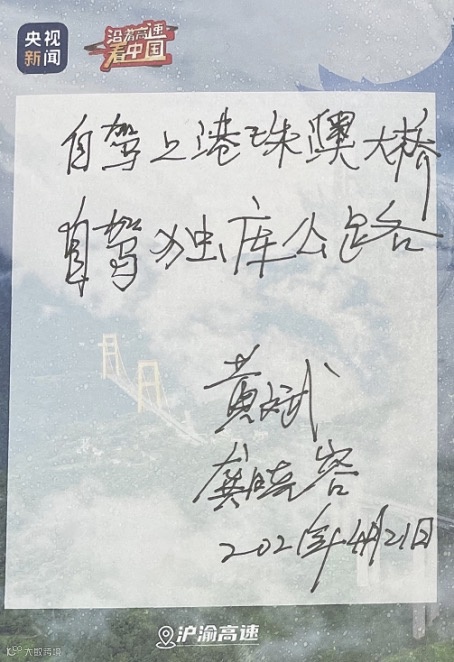 央视
新闻
沿着高速
看中国
自驾上港珠澳大桥
自驾独库公路
黄斌
龚晓容
2021年4月21日
沪渝高速
大数跨境